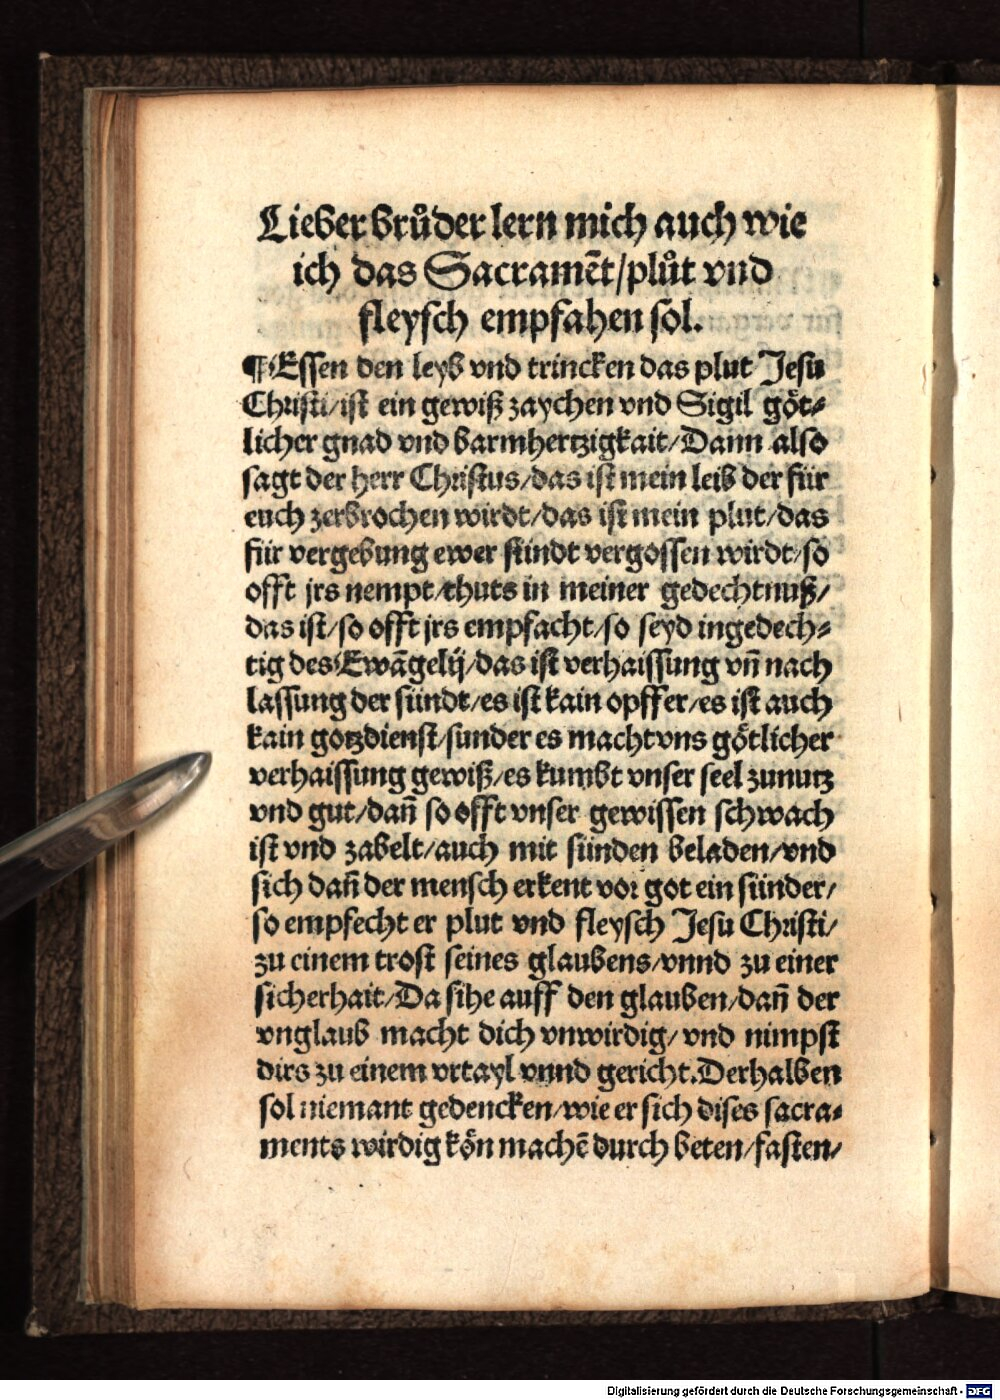 Lieber brůder lern mich auch wie
ich das Sacramēt/plůt vnd
fleysch empfahen sol.
¶Essen den leyb vnd trincken das plut Jesu
Christi/ist ein gewiß zaychen vnd Sigil göt⸗
licher gnad vnd barmhertzigkait/Dann also
sagt der herr Christus/das ist mein leib der für
euch zerbrochen wirdt/das ist mein plut/das
für vergebung ewer sündt vergossen wirdt/so
offt jrs nempt/thuts in meiner gedechtnuß/
das ist/so offt jrs empfacht/so seyd ingedech⸗
tig des Ewāgelij/das ist verhaissung vñ nach
lassung der sündt/es ist kain opffer/es ist auch
kain gotzdienst/sunder es macht vns götlicher
verhaissung gewiß/es kumbt vnser seel zunutz
vnd gut/dañ so offt vnser gewissen schwach
ist vnd zabelt/auch mit sünden beladen/vnd
sich dañ der mensch erkent vor got ein sünder/
so empfecht er plut vnd fleysch Jesu Christi/
zu einem trost seines glaubens/vnnd zu einer
sicherhait/Da sihe auff den glauben/dañ der
vnglaub macht dich vnwirdig/vnd nimpst
dirs zu einem vrtayl vnnd gericht.Derhalben
sol niemant gedencken/wie er sich dises sacra⸗
ments wirdig kön machē durch beten/fasten/
Digitalisierung gefördert durch die Deutsche Forschungsgemeinschaft - DFG